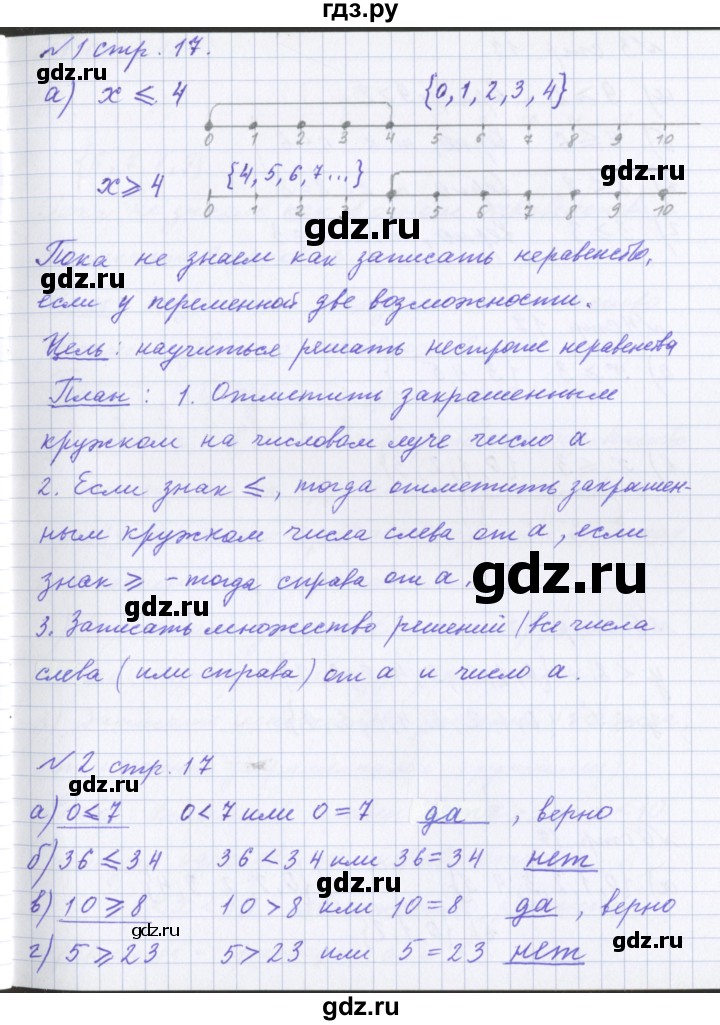 гдз.ру
№1 стр. 17.
а) x ⩽ 4 {0, 1, 2, 3, 4}
0 1 2 3 4 5 6 7 8 9 10
gdz.ru
x ⩾ 4 {4, 5, 6, 7...}
0 1 2 3 4 5 6 7 8 9 10
gdz.ru
Пока не знаем как записать неравенство,
gdz.ru
если у переменной две возможности.
Цель: научиться решать нестрогие неравенства
План: 1. Отметить закрашенным
кружком на числовом луче число a
gdz.ru
2. Если знак ⩽, тогда отметить закрашен-
ным кружком числа слева от a, если
знак ⩾ - тогда справа от a.
gdz.ru
gdz.ru
3. Записать множество решений (все числа
слева (или справа) от a и число a.
№2 стр. 17
gdz.ru
а) 0⩽7 0<7 или 0=7 да, верно
б) 36⩽34 36<34 или 36=34 нет
gdz.ru
в) 10⩾8 10>8 или 10=8 да, верно
gdz.ru
г) 5⩾23 5>23 или 5=23 нет
gdz.ru
gdz.ru